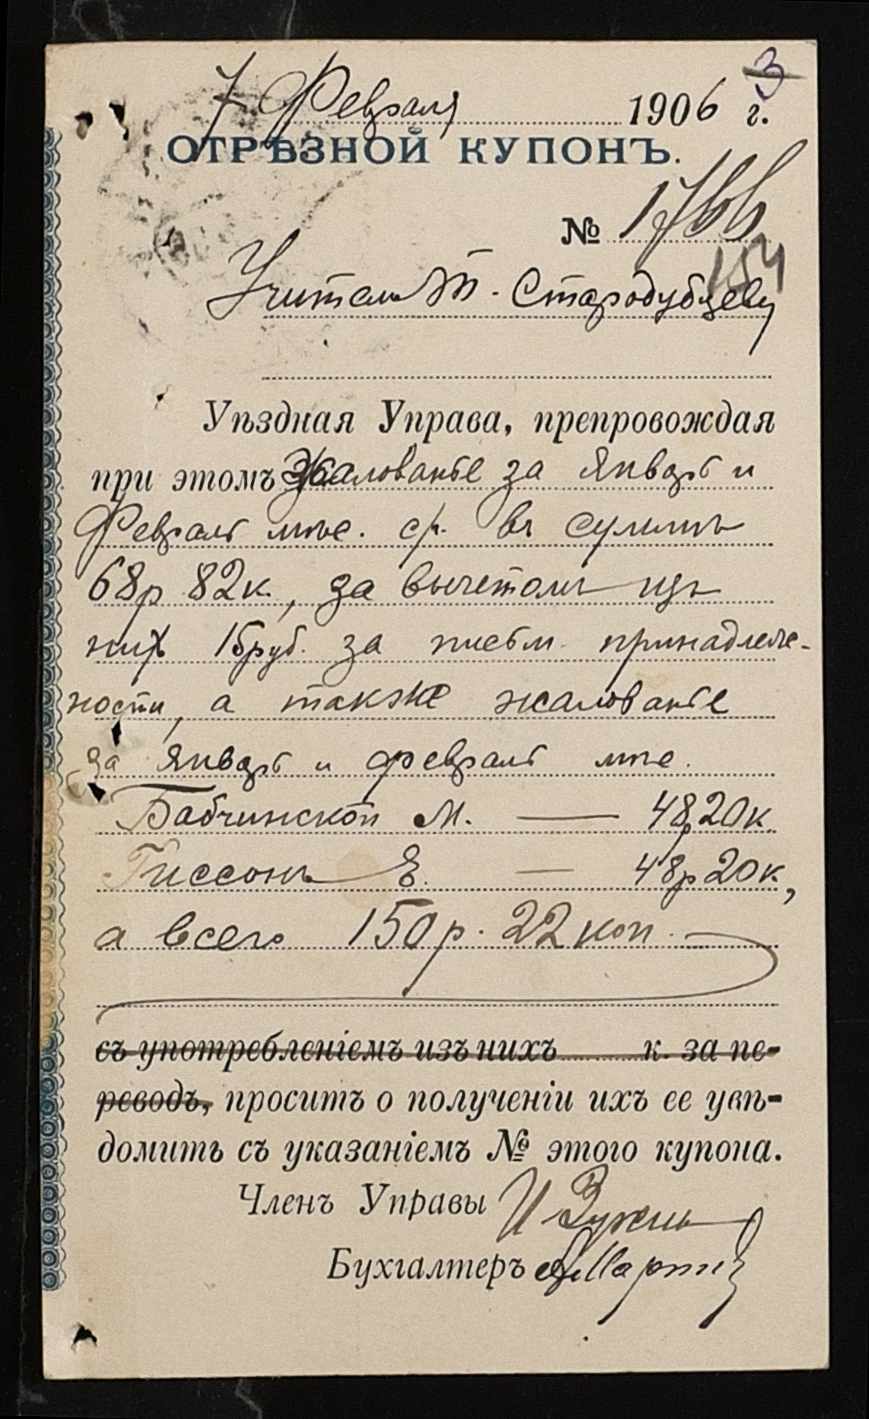 7 Февраля 1906 г.
3
ОТРѢЗНОЙ КУПОНЪ.
№ 1766
154
Учителю Стародубцеву
Уѣздная Управа, препровождая
при этомъ Жалованье за Январь и
Февраль мѣс. с/г. въ суммѣ
68р 82к., за вычетомъ изъ
нихъ 15руб. за письм. принадлеж-
ности, а также жалованье
за Январь и февраль мѣс.
Бабчинской М. — 48р 20к.
Гиссонъ Е. — 48р 20к.,
а всего 150р. 22 коп.
съ употребленіемъ изъ нихъ к. за пе-
реводъ, проситъ о полученіи ихъ ее увѣ-
домить съ указаніемъ № этого купона.
Членъ Управы И.
Бухгалтеръ